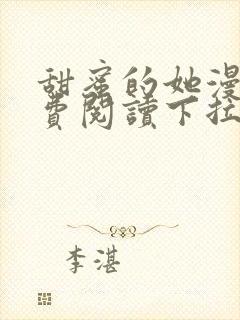 甜蜜的她漫
費閱讀下拉
李湛